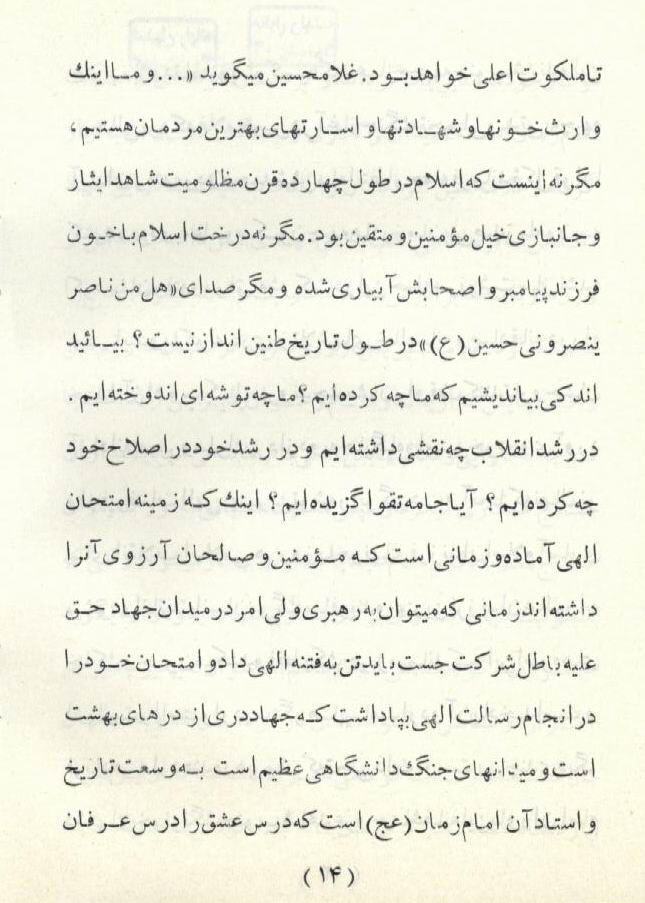 تاملکوت اعلی خواهدبود. غلامحسین میگوید «... و مااینك
وارث خونهاو شهادتهاو اسارتهای بهترین مردمان هستیم،
مگرنه اینست که اسلام در طول چهارده قرن مظلومیت شاهد ایثار
و جانبازی خیل مؤمنین و متقین بود. مگرنه درخت اسلام باخون
فرزند پیامبر و اصحابش آبیاری شده و مگر صدای «هل من ناصر
ینصرونی حسین (ع)» در طول تاریخ طنین انداز نیست؟ بیائید
اندکی بیاندیشیم که ماچه کرده‌ایم؟ ماچه توشه‌ای اندوخته‌ایم.
در رشد انقلاب چه نقشی داشته‌ایم و در رشد خود در اصلاح خود
چه کرده‌ایم؟ آیا جامه تقوا گزیده‌ایم؟ اینك که زمینه امتحان
الهی آماده و زمانی است که مؤمنین و صالحان آرزوی آنرا
داشته‌اند زمانی که میتوان به رهبری ولی امر در میدان جهاد حق
علیه باطل شرکت جست باید تن به فتنه الهی داد و امتحان خود را
در انجام رسالت الهی بپاداشت که جهاد دری از درهای بهشت
است و میدانهای جنگ دانشگاهی عظیم است به وسعت تاریخ
و استاد آن امام زمان (عج) است که درس عشق را درس عرفان
(۱۴)